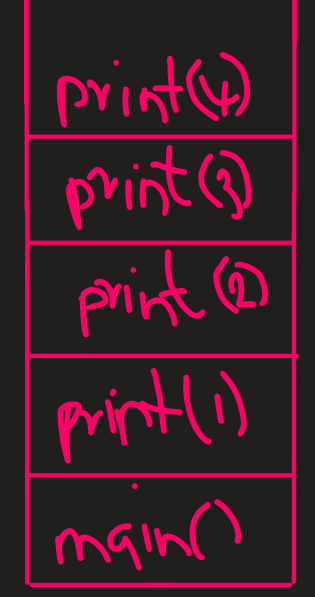 print(4)
print(3)
print(2)
print(1)
main()